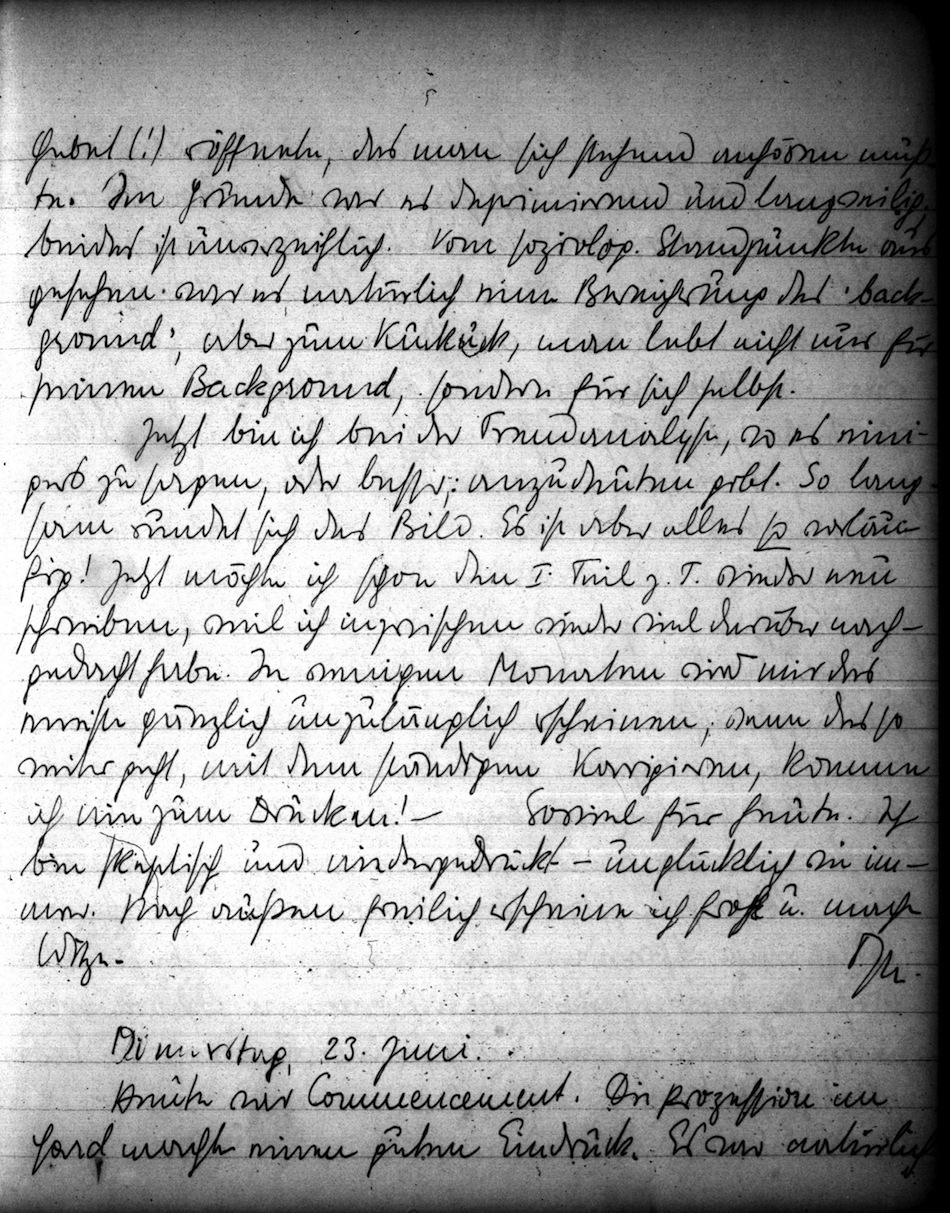 Gebet (!) eröffnete, das man sich stehend anhören muß-
te. Im Grunde war es deprimierend und langweilig,
beides ist unverzeihlich. Vom soziolog. Standpunkte aus
gesehen war es natürlich eine Bereicherung des 'back-
ground', aber zum Kuckuck, man lebt nicht nur für
seinen Background, sondern für sich selbst.
Jetzt bin ich bei der Trendanalyse, wo es eini-
ges zu sagen, oder besser: anzudeuten gibt. So lang-
sam rundet sich das Bild. Es ist aber alles so vorläu-
fig! Jetzt möchte ich schon den I. Teil z. T. wieder neu
schreiben, weil ich inzwischen wieder viel darüber nach-
gedacht habe. In wenigen Monaten wird mir das
meiste gänzlich unzulänglich erscheinen, wenn das so
weiter geht, mit dem ständigen Korrigieren, komme
ich nie zum Drucken! – Soviel für heute. Ich
bin skeptisch und niedergedrückt – unglücklich wie im-
mer. Nach außen freilich erscheine ich froh u. mache
Witze.
Donnerstag, 23. Juni.
Heute war Commencement. Die Prozession im
Yard machte einen guten Eindruck. Es war natürlich